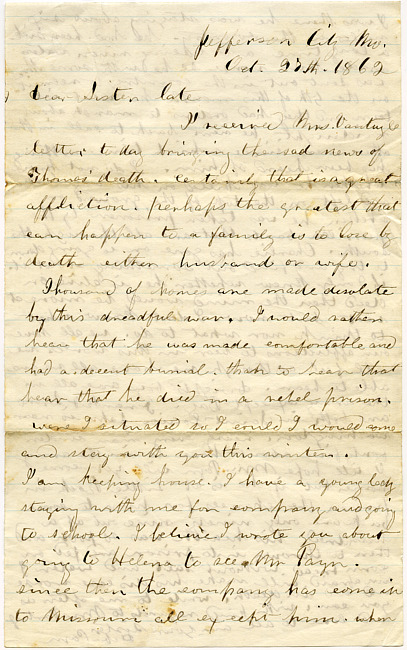 Jefferson City Mo.
Oct. 27th. 1862
Dear Sister Cate
I received Mrs.
letter to day bringing the sad news of
Thomas' death. Certainly that is a great
affliction. perhaps the greatest that
can happen to a family is to lose by
death either husband or wife.
Thousand of homes are made desolate
by this dreadful war. I would rather
hear that he was made comfortable and
had a decent burial. than to hear that
hear that he died in a rebel prison.
were I situated so I could I would come
and stay with you this winter.
I am keeping house. I have a young lady
staying with me for company and going
to school. I believe I wrote you about
going to Helena to see Mr Payn.
since then the company has come in
to Missouri all except him. when